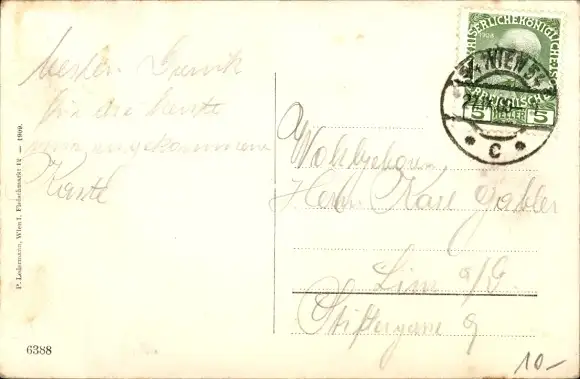 Besten Dank
für die heute
mir angekommene
Karte
KAISERLICHE KÖNIGLICHE ÖST
1908
5 HELLER 5
WIEN
C
Wohlgeboren
Herrn Karl Gabler
Linz a/D.
Stiftergasse 9
P. Ledermann, Wien I, Fleischmarkt 12 — 1909.
6388
10-